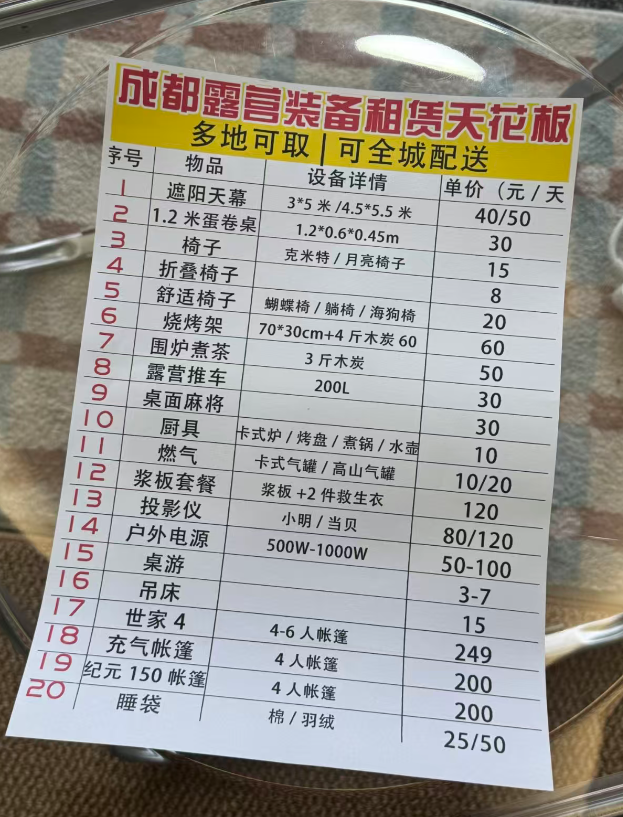 成都露营装备租赁天花板
多地可取 | 可全城配送
序号 物品 设备详情 单价（元 / 天
1 遮阳天幕 3*5 米 /4.5*5.5 米 40/50
2 1.2 米蛋卷桌 1.2*0.6*0.45m 30
3 椅子 克米特 / 月亮椅子 15
4 折叠椅子 8
5 舒适椅子 蝴蝶椅 / 躺椅 / 海狗椅 20
6 烧烤架 70*30cm+4 斤木炭 60 60
7 围炉煮茶 3 斤木炭 50
8 露营推车 200L 30
9 桌面麻将 30
10 厨具 卡式炉 / 烤盘 / 煮锅 / 水壶 10
11 燃气 卡式气罐 / 高山气罐 10/20
12 浆板套餐 浆板 +2 件救生衣 120
13 投影仪 小明 / 当贝 80/120
14 户外电源 500W-1000W 50-100
15 桌游 3-7
16 吊床 15
17 世家 4 4-6 人帐篷 249
18 充气帐篷 4 人帐篷 200
19 纪元 150 帐篷 4 人帐篷 200
20 睡袋 棉 / 羽绒 25/50